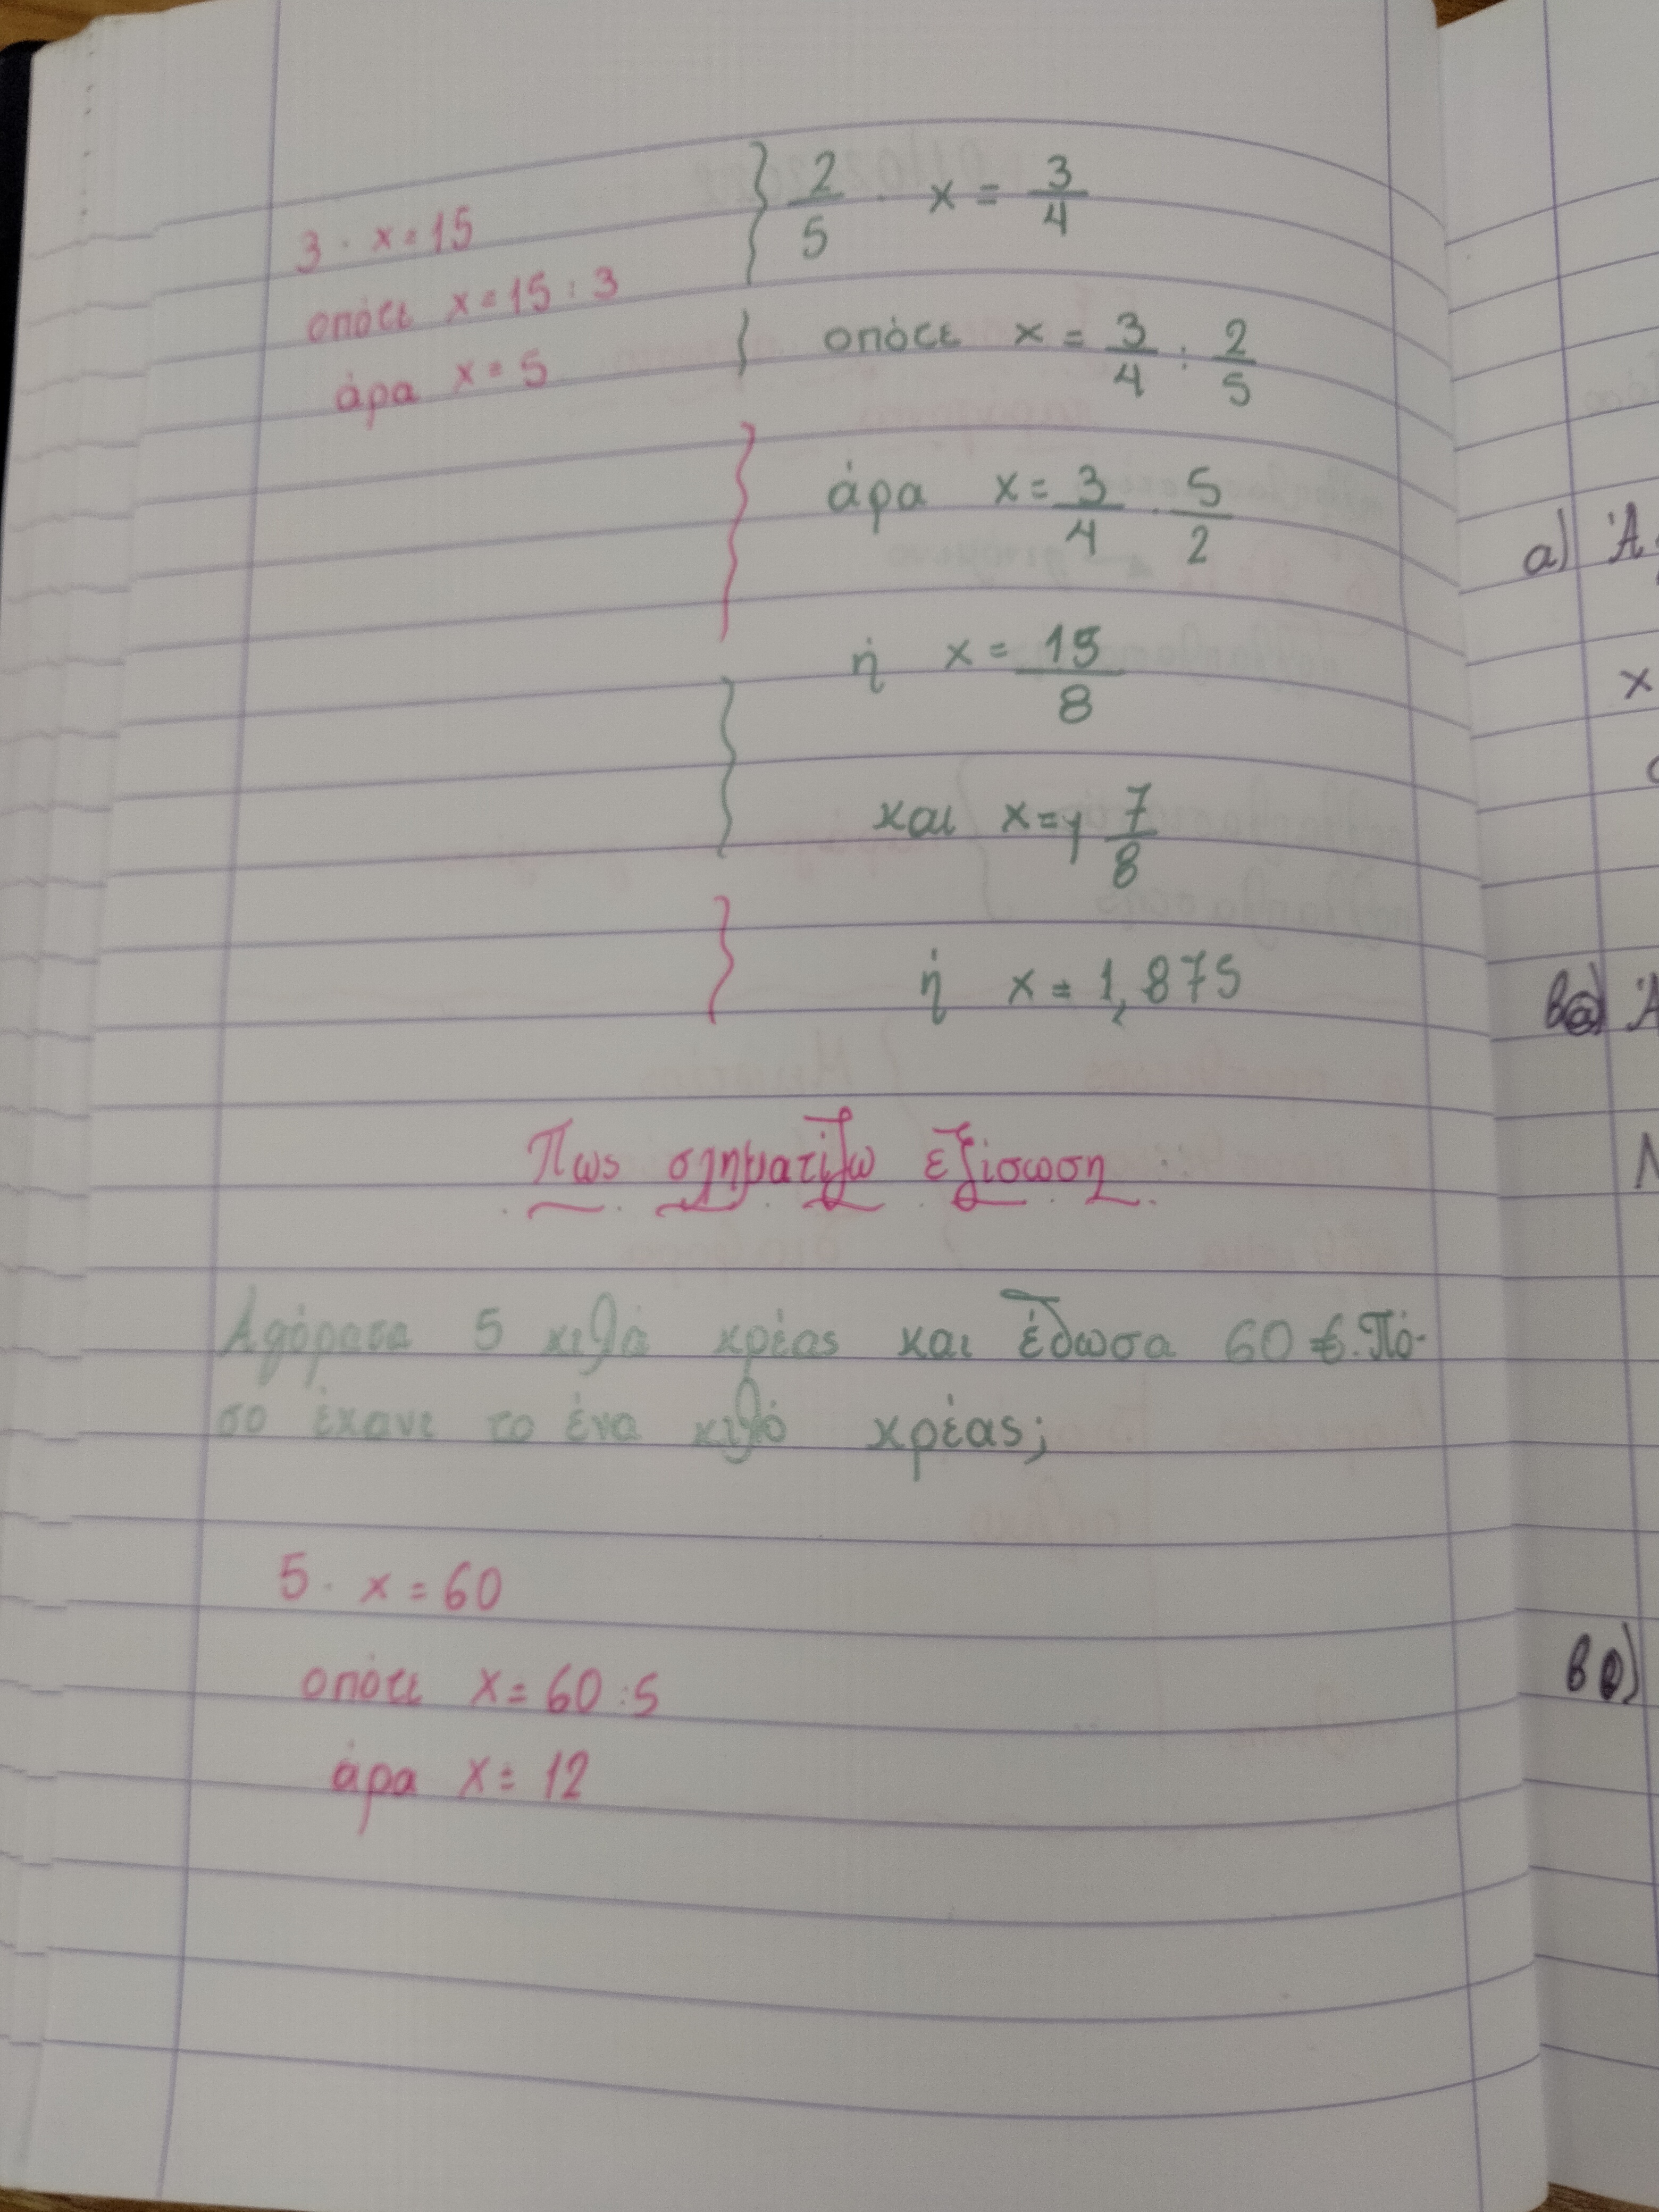 3 · x = 15
οπότε x = 15 : 3
άρα x = 5
2/5 · x = 3/4
οπότε x = 3/4 : 2/5
άρα x = 3/4 · 5/2
ή x = 15/8
και x = 1 7/8
ή x = 1,875
Πως σχηματίζω εξίσωση
Αγόρασα 5 κιλά κρέας και έδωσα 60 €. Πό-
σο έκανε το ένα κιλό κρέας;
5 · x = 60
οπότε x = 60 : 5
άρα x = 12
α) Ά
x
β) Ά
β)